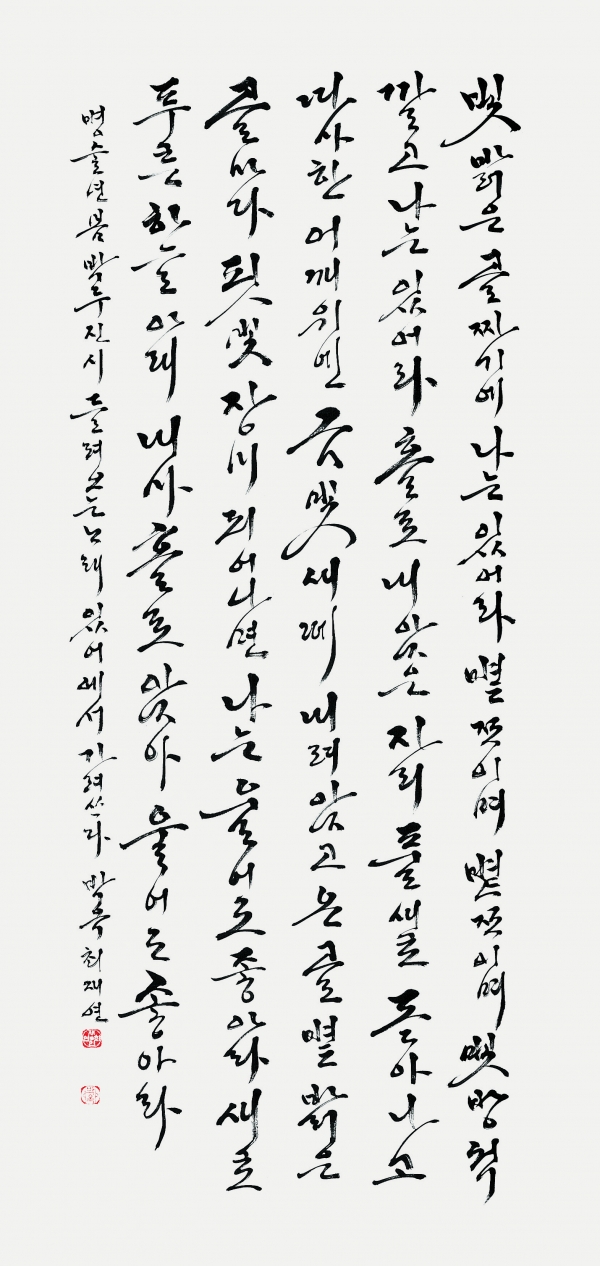 빛 밝은 골짜기에 나는 있어라 볕 쪼이며 볕 쪼이며 빛 방석
깔고 나는 있어라 홀로 내 앉은 자리 풀 새로 돋아나고
따사한 어깨 위엔 금빛 새 떼 내려앉고 온 골 볕 밝은
골마다 핏빛 장미 피어나면 나는 울어도 좋아라 새로
푸른 하늘 아래 내사 홀로 앉아 울어도 좋아라
병술년 봄 박두진 시 들려오는 노래 있어에서 가려 쓰다 최재연